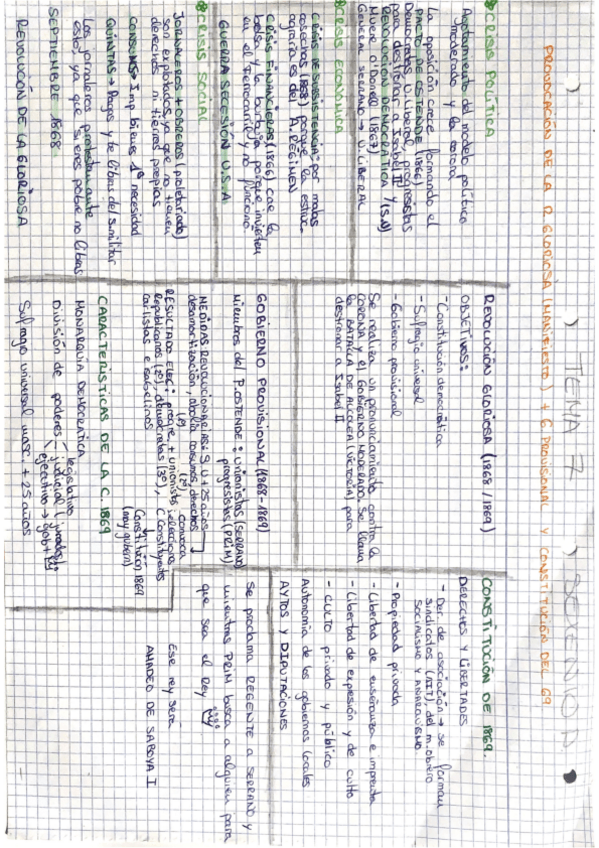 TEMA 7 SEXENIO D
PROVOCACIÓN DE LA R. GLORIOSA (MANIFIESTO) + G. PROVISIONAL Y CONSTITUCIÓN DEL 69
CRISIS POLÍTICA
Agotamiento del modelo político
moderado y la corona
La oposición crece formando el
PACTO DE OSTENDE (1866)
Demócratas, U. Liberal, progresistas
para destronar a Isabel II y
REVOLUCIÓN DEMOCRÁTICA / (S.U)
Muere O'Donell (1867)
General SERRANO → U. LIBERAL
CRISIS ECONÓMICA
CRISIS DE SUBSISTENCIA: por malas
cosechas (1868) porque la estruc.
agraria es del A. RÉGIMEN
CRISIS FINANCIERAS (1866) cae la
bolsa y la burbuja porque invierten
en el ferrocarril y no funcionó
GUERRA SECESIÓN U.S.A
CRISIS SOCIAL
JORNALEROS + OBREROS (proletariado)
son explotados, ya que no tienen
derechos ni tierras propias
CONSUMOS → Imp bienes 1ª necesidad
QUINTAS → Pagas y te libras del s. militar
Los jornaleros protestan ante
esto, ya que si eres pobre no libras
SEPTIEMBRE 1868
REVOLUCIÓN DE LA GLORIOSA
REVOLUCIÓN GLORIOSA (1868/1869)
OBJETIVOS:
- Constitución democrática
- Sufragio universal
- Gobierno provisional
Se realiza un pronunciamiento contra la
CORONA y el GOBIERNO MODERADO. Se lleva
la BATALLA DE ALCOLEA (VICTORIA) para
destronar a Isabel II
GOBIERNO PROVISIONAL (1868-1869)
Miembros del P. OSTENDE: unionistas (SERRANO)
progresistas (PRIM)
MEDIDAS REVOLUCIONARIAS: S.U + 25 años
desamortización, abolir consumos, derechos
convoca
RESULTADO ELEC: + unionistas
republicanos (2º), demócratas (3º), C Constituyentes
carlistas e isabelinos
Constitución 1869
CARACTERÍSTICAS DE LA C. 1869
MONARQUÍA DEMOCRÁTICA
División de poderes
legislativo
judicial (jurados)
ejecutivo → gob +
Sufragio universal masc + 25 años
CONSTITUCIÓN DE 1869.
DERECHOS Y LIBERTADES
- Der. de asociación → se forman
sindicatos (AIT), del m. obrero
SOCIALISMO Y ANARQUISMO
- Propiedad privada
- Libertad de enseñanza e imprenta
- Libertad de expresión y de culto
- CULTO privado y público
Autonomía de los gobiernos locales
AYTOS Y DIPUTACIONES
Se proclama REGENTE a SERRANO y
mientras PRIM busca a alguien para
que sea el Rey
Ese rey será
AMADEO DE SABOYA I